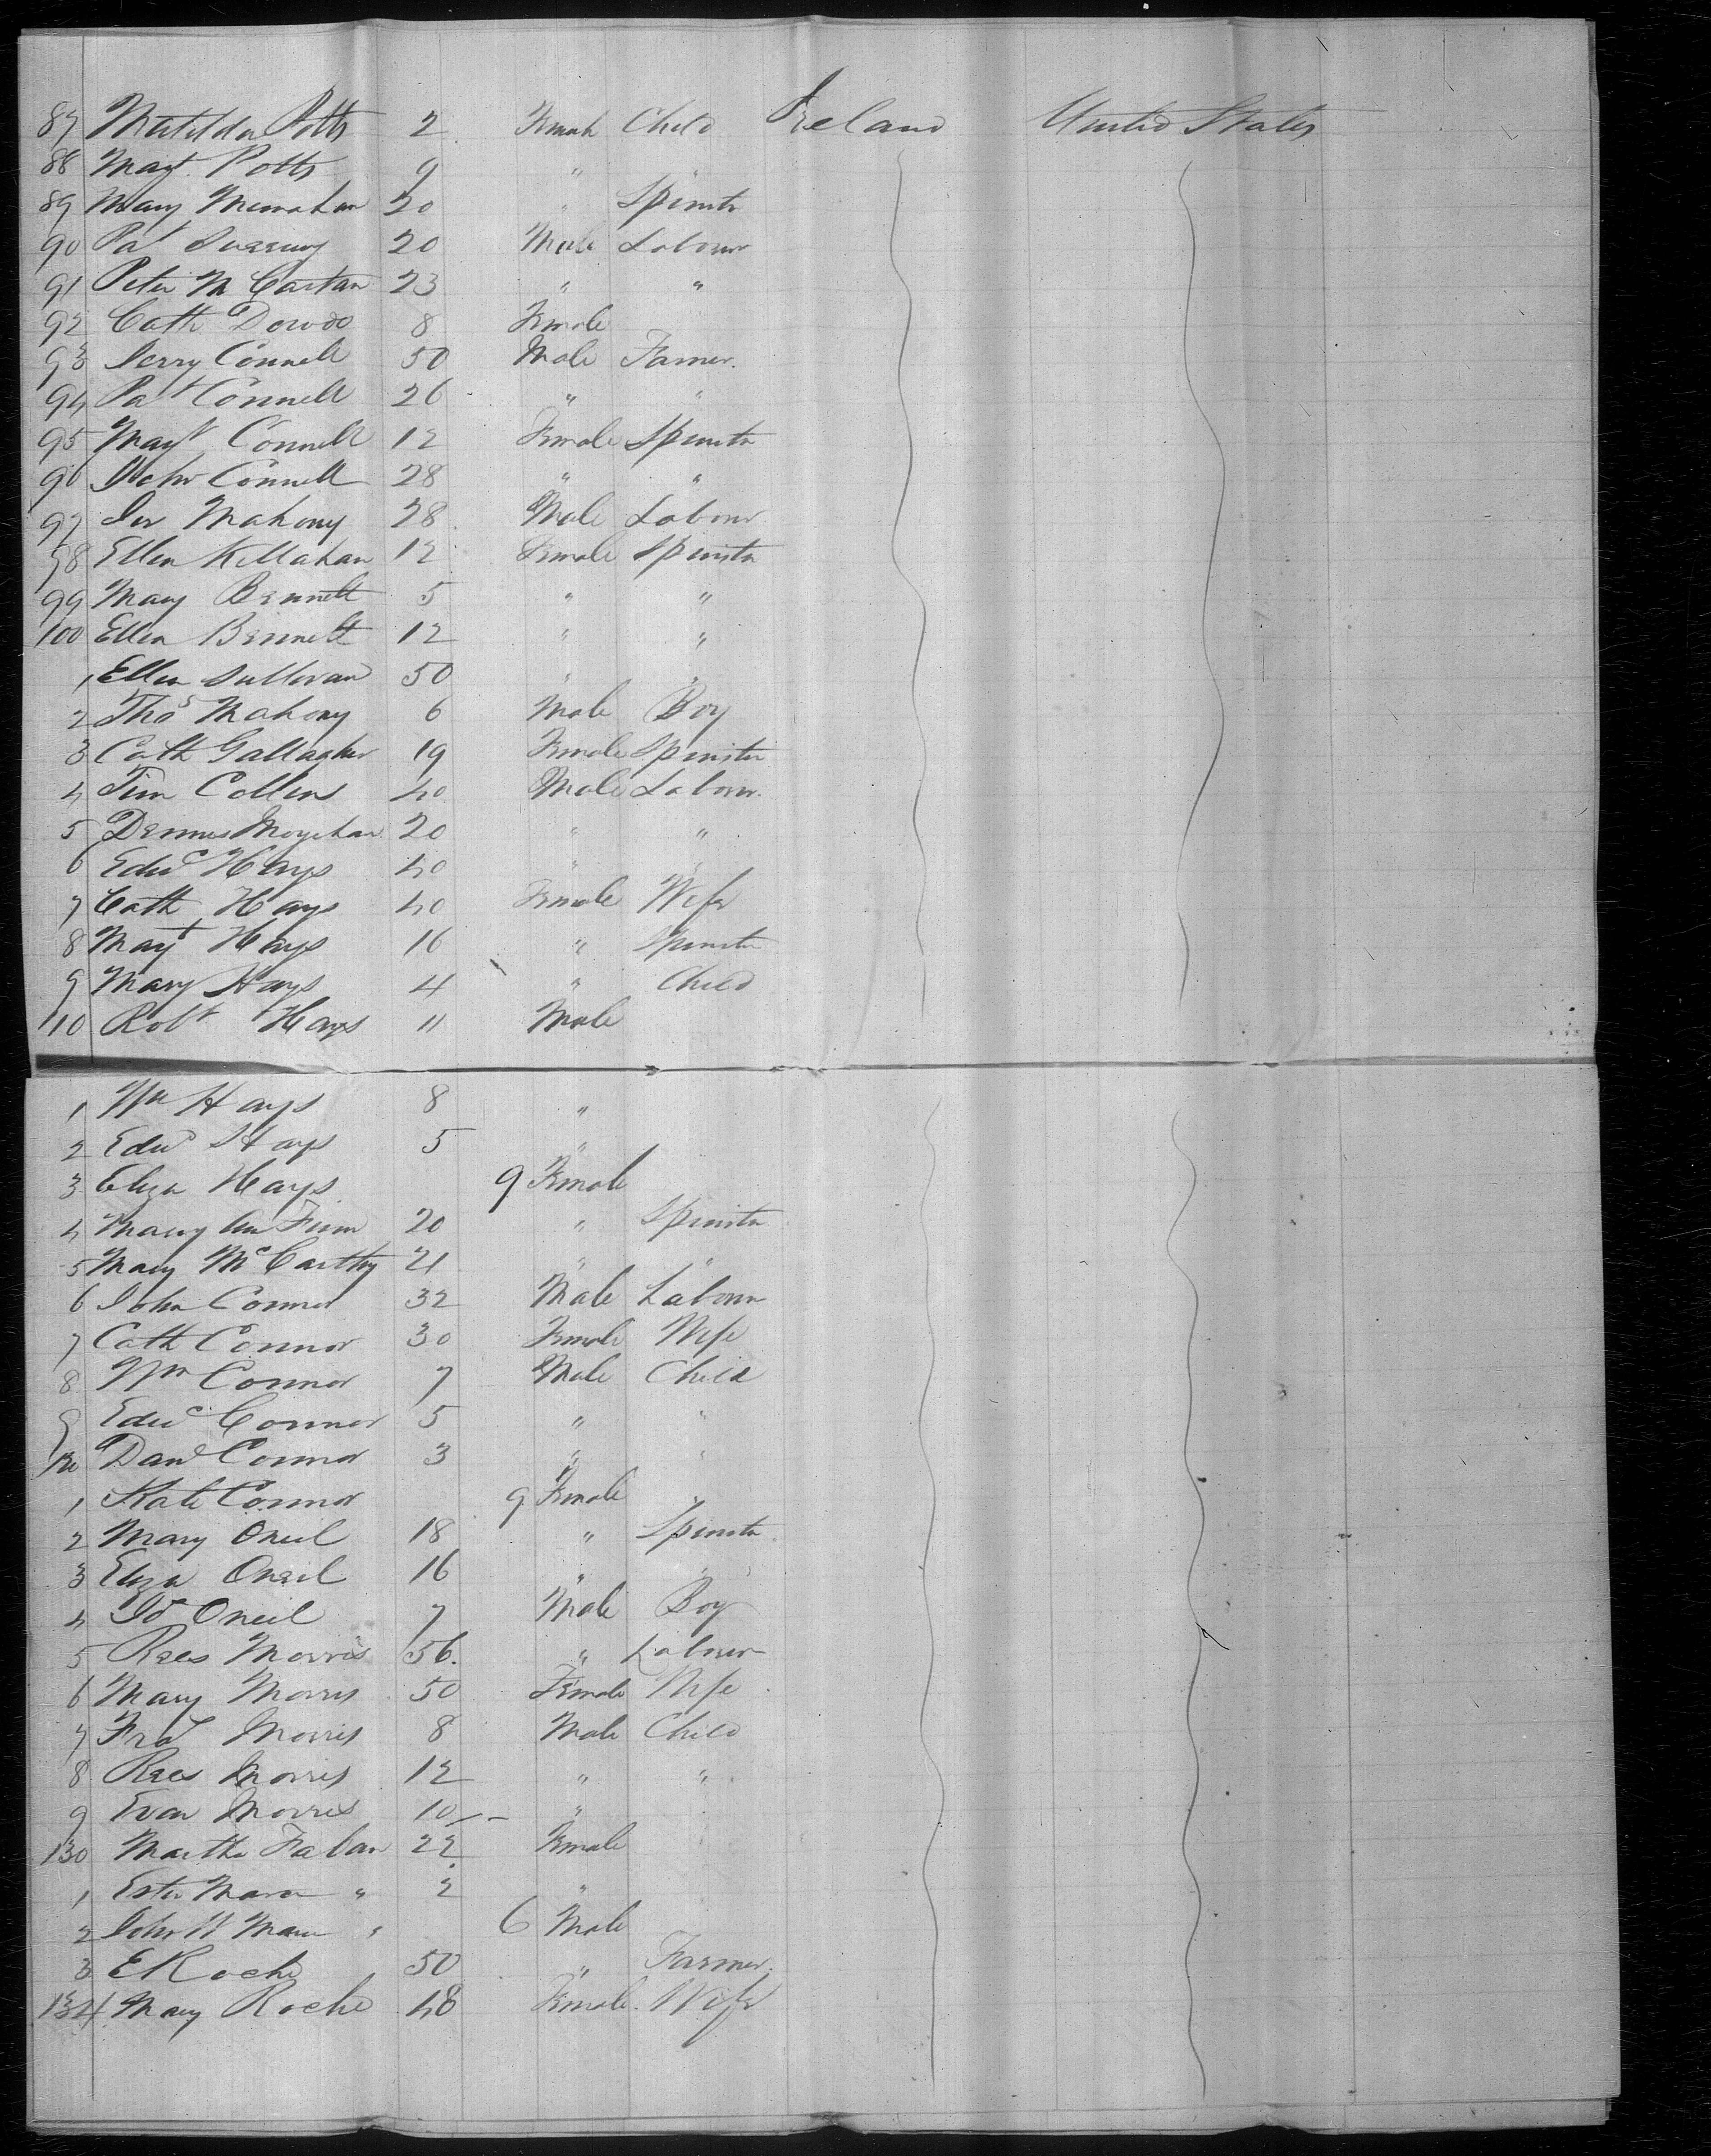 87 Matilda Potts 2 Female Child Ireland United States
88 Magt. Potts 9 " "
89 Mary Monahan 20 " Spinstr
90 Pat Sweeny 20 Male Labour
91 Peter Mc Cartan 23 " "
92 Cath Dowd 8 Female
93 Jerry Connell 50 Male Farmer.
94 Pat Connell 26 " "
95 Magt Connell 12 Female Spinstr
96 John Connell 28 " "
97 Jer Mahony 28 Male Labour
98 Ellen Killahan 12 Female Spinstr
99 Mary Bennett 5 " "
100 Ellen Bennett 12 " "
1 Ellen Sullivan 50 " "
2 Thos Mahony 6 Male Boy
3 Cath Gallagher 19 Female Spinster
4 Tim Collins 40 Male Labour.
5 Dennis Moynihan 20 " "
6 Edwd Hays 40 " "
7 Cath Hays 40 Female Wife
8 Magt Hays 16 " Spinstr
9 Mary Hays 4 " Child
110 Robt Hays 11 Male
1 Wm Hays 8 "
2 Edwd Hays 5 "
3 Eliza Hays 9 Female
4 Mary Ann Finn 20 " Spinstr
5 Mary McCarthy 21 " "
6 John Connor 32 Male Labour
7 Cath Connor 30 Female Wife
8 Wm Connor 7 Male Child
9 Edwd Connor 5 " "
120 Danl Connor 3 " "
1 Kate Connor 9 Female "
2 Mary Oneil 18 " Spinstr
3 Eliza Oneil 16 " "
4 Jos Oneil 7 Male Boy
5 Rees Morris 56. " Labour
6 Mary Morris 50 Female Wife
7 Frd Morris 8 Male Child
8 Rees Morris 12 " "
9 Evan Morris 10 "
130 Martha Faban 22 Female
1 Ester Mara " 2 "
2 John W " 6 Male
3 E Roche 50 " Farmer.
134 Mary Roche 48 Female. Wife